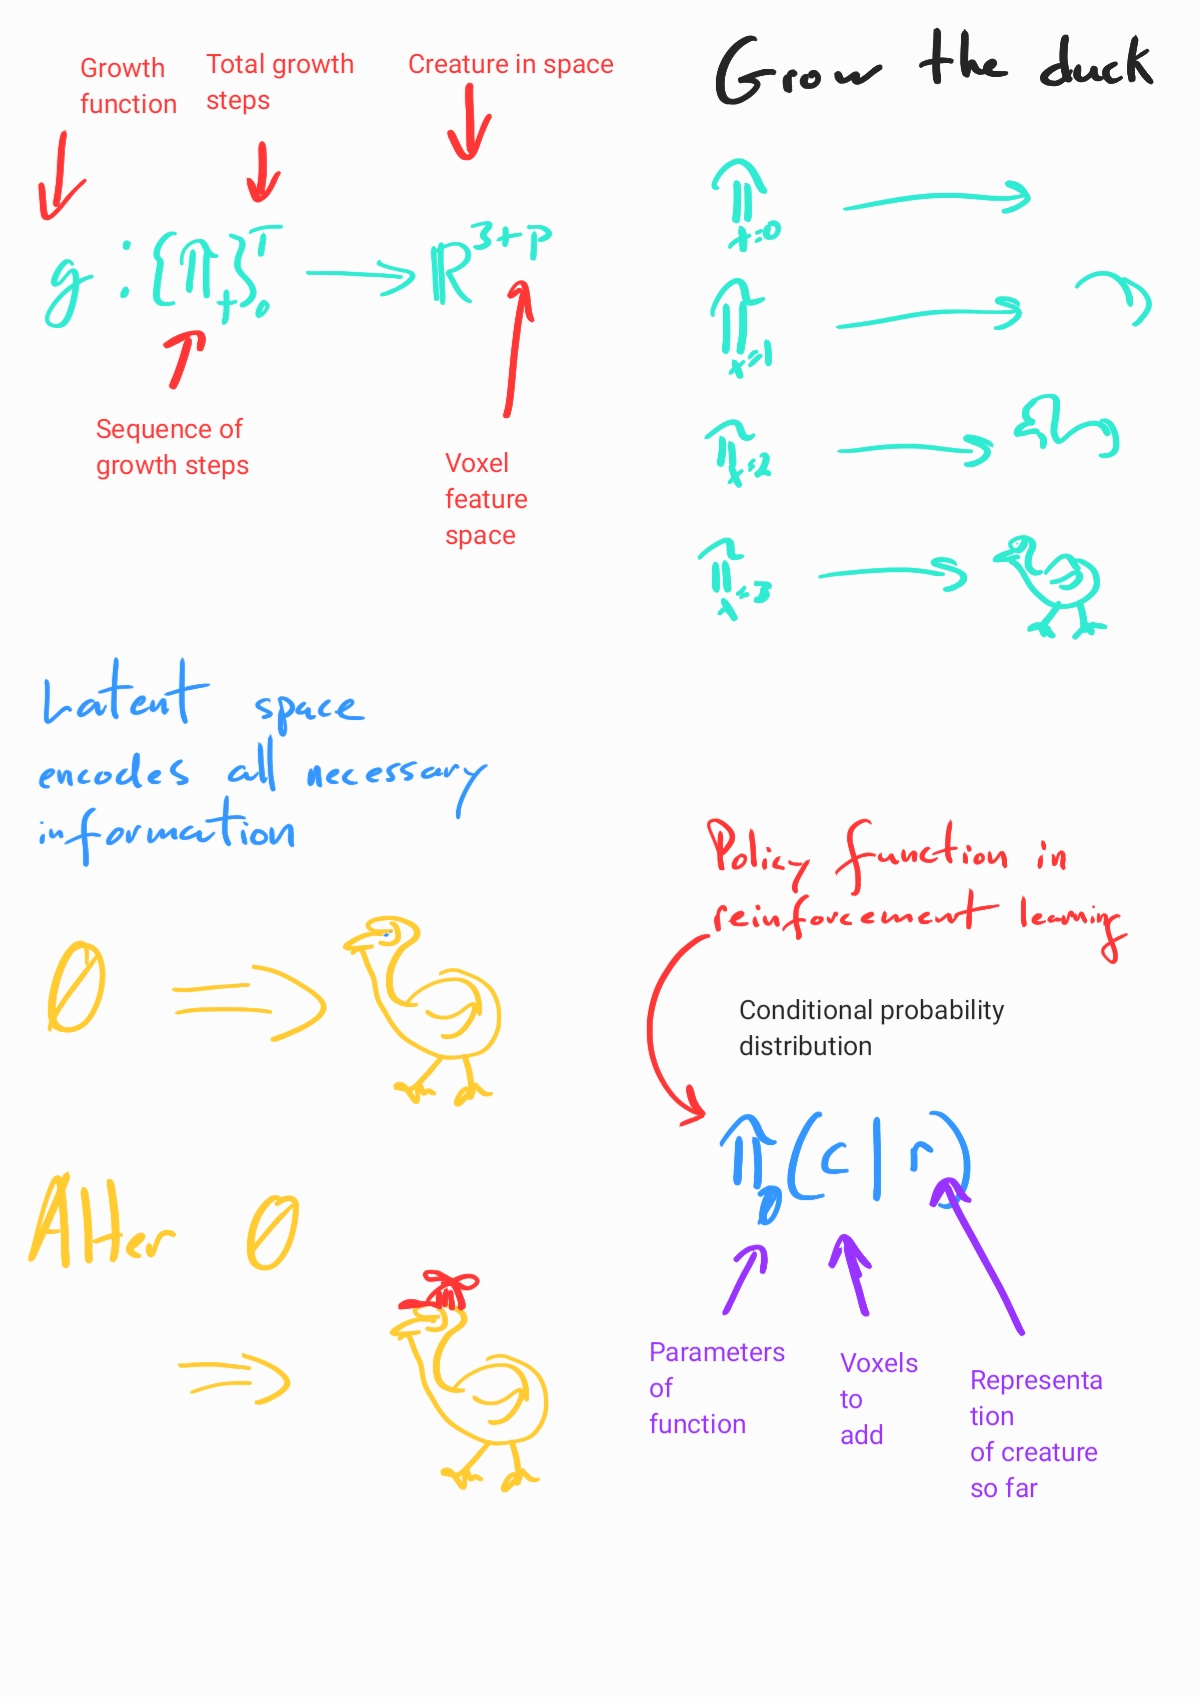 Grow the duck
Growth
function
Total growth
steps
Creature in space
g : {π_t}_0^T → ℝ^{3+p}
Sequence of
growth steps
Voxel
feature
space
π_{t=0} →
π_{t=1} →
π_{t=2} →
π_{t=3} →
Latent space
encodes all necessary
information
θ ⇒
Alter θ
⇒
Policy function in
reinforcement learning
Conditional probability
distribution
π_θ(c | r)
Parameters
of
function
Voxels
to
add
Representa
tion
of creature
so far